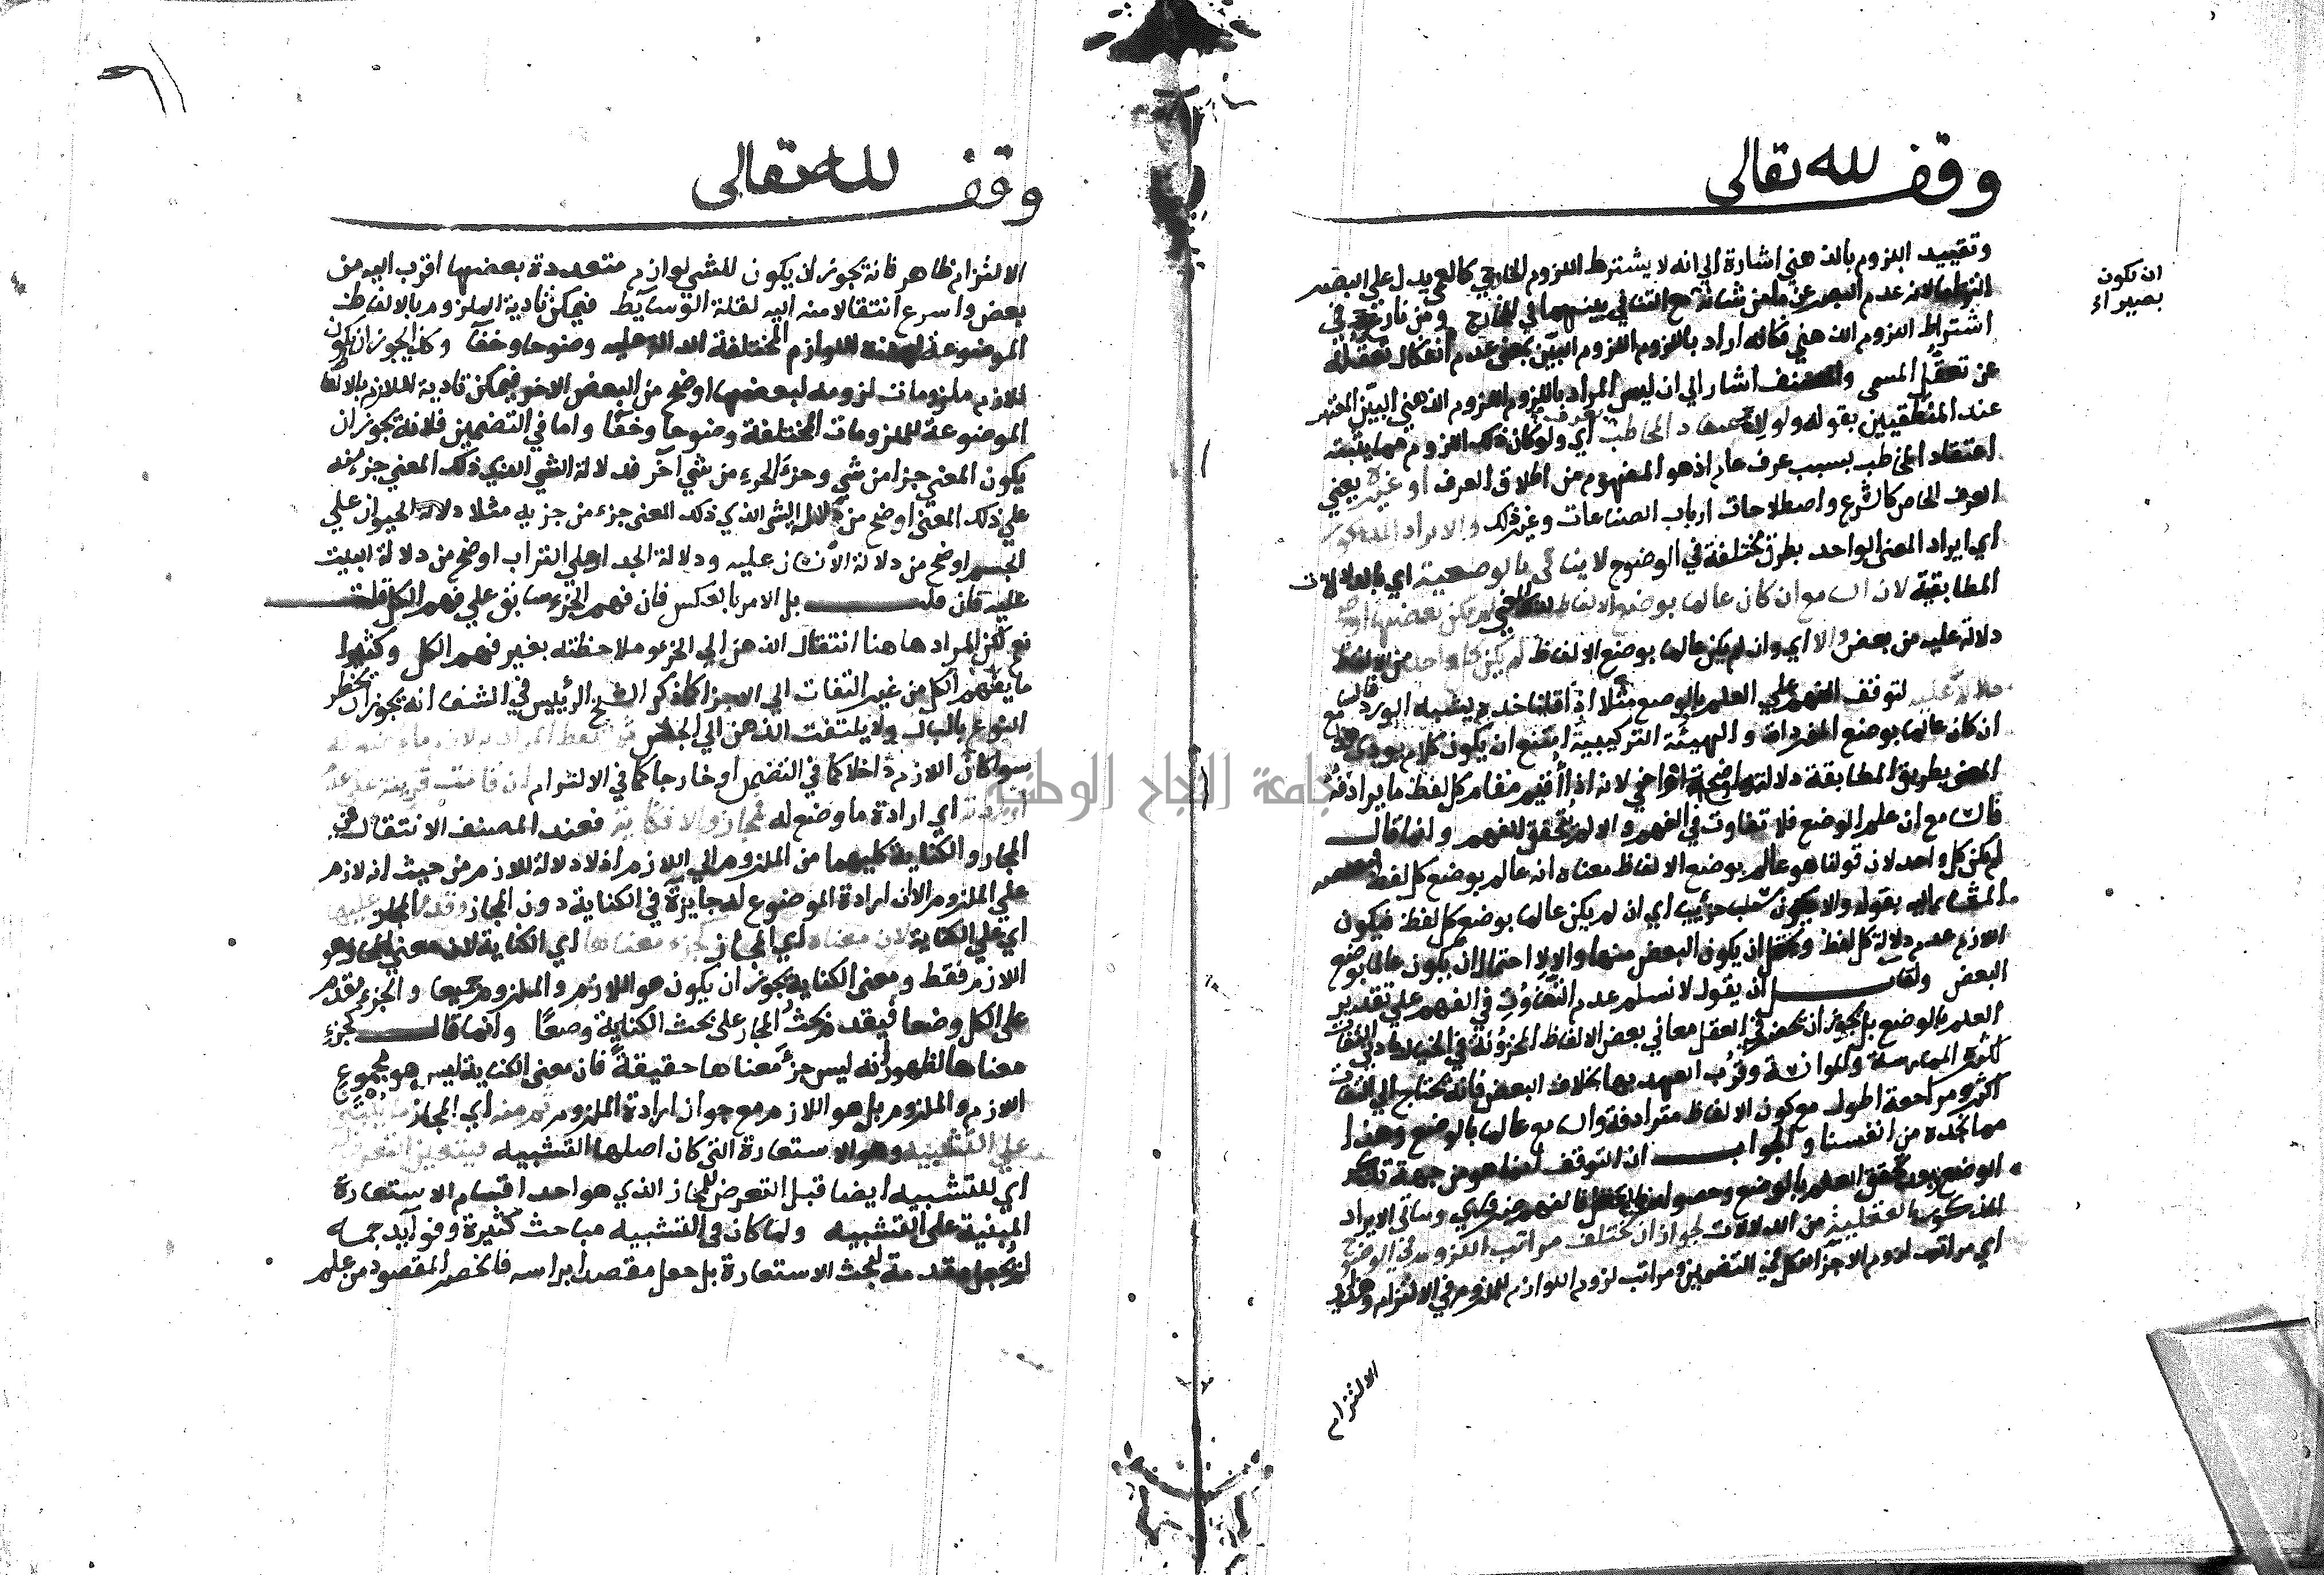 وقف لله تعالى
وتقييد اللزوم بالذهني اشارة الي انه لا يشترط اللزوم الخارجي كالعمي يدل علي البصر
التزاما لانه عدم البصر عن ما من شانه مع التنافي بينهما في الخارج ومن نازع في
ان يكون
بصيرا
اشتراط اللزوم الذهني فكانه اراد باللزوم اللزوم البين بمعني عدم انفكاك تعقله
عن تعقل المسمي والمصنف اشار الي ان ليس المراد باللزوم اللزوم الذهني البين المعتبر
عند المنطقيين بقوله ولو لاعتقاد المخاطب بعرف اي ولو كان ذلك اللزوم مما يثبته
اعتقاد المخاطب بسبب عرف عام اذ هو المفهوم من اطلاق العرف او غيره يعني
العرف الخاص كالشرع واصطلاحات ارباب الصناعات وغير ذلك والايراد المذكور
اي ايراد المعني الواحد بطرق مختلفة في الوضوح لا يتاتي بالوضعية اي بالدلالات
المطابقية لان السامع ان كان عالما بوضع الالفاظ لم يكن بعضها اوضح
دلالة عليه من بعض والا اي وان لم يكن عالما بوضع الالفاظ لم يكن كل واحد من الالفاظ
دالا عليه لتوقف الفهم علي العلم بالوضع مثلا اذا قلنا خده يشبه الورد فالسامع
ان كان عالما بوضع المفردات والهيئة التركيبية امتنع ان يكون كلام يودي هذا
المعني بطريق المطابقة دلالة اوضح او اخفي لانه اذا اقيم مقام كل لفظ ما يرادفه
فالسامع ان علم الوضع فلا تفاوت في الفهم والا لم يتحقق الفهم وانما قال
لم يكن كل واحد لان قولنا هو عالم بوضع الالفاظ معناه انه عالم بوضع كل لفظ
المشار اليه بقوله والا يكون سلب جزئي اي ان لم يكن عالما بوضع كل لفظ فيكون
اللازم عدم دلالة كل لفظ ويحتمل ان يكون البعض منها دالا لاحتمال ان يكون عالما بوضع
البعض ولقائل ان يقول لا نسلم عدم التفاوت في الفهم علي تقدير
العلم بالوضع بل يجوز ان تحضر في العقل معاني بعض الالفاظ المخزونة في الخيال بادني التفات
لكثرة الممارسة والموانسة وقرب العهد بها بخلاف البعض فانه يحتاج الي التفات
اكثر ومراجعة اطول مع كون الالفاظ مترادفة والسامع عالما بالوضع وهذا
مما نجده من انفسنا والجواب ان التوقف انما هو من جهة تذكر
الوضع وبعد تحقق العلم بالوضع وحصوله بالفعل فالفهم ضروري ويتاتي الايراد
المذكور بالعقلية من الدلالات لجواز ان تختلف مراتب اللزوم في الوضوح
اي مراتب لزوم الاجزا للكل في التضمن ومراتب لزوم اللوازم للملزوم في الالتزام وهذا في
الالتزام
وقف لله تعالى
الالتزام ظاهر فانه يجوز ان يكون للشي لوازم متعددة بعضها اقرب اليه من
بعض واسرع انتقالا منه اليه لقلة الوسايط فيمكن تادية الملزوم بالالفاظ
الموضوعة لهذه اللوازم المختلفة الدلالة عليه وضوحا وخفا وكذا يجوز ان يكون
للازم ملزومات لزومه لبعضها اوضح من البعض الاخر فيمكن تادية اللازم بالالفاظ
الموضوعة للملزومات المختلفة وضوحا وخفا واما في التضمن فلانه يجوز ان
يكون المعني جزا من شي وجزء الجزء من شي آخر فدلالة الشي الذي ذلك المعني جزء منه
علي ذلك المعني اوضح من دلالة الشي الذي ذلك المعني جزء من جزيه مثلا دلالة الحيوان علي
الجسم اوضح من دلالة الانسان عليه ودلالة الجدار علي التراب اوضح من دلالة البيت
عليه فان قلت بل الامر بالعكس فان فهم الجزء سابق علي فهم الكل قلت
نعم لكن المراد هاهنا انتقال الذهن الي الجزء وملاحظته بغير فهم الكل وكثيرا
ما يفهم الكل من غير التفات الي الاجزا كما ذكر الشيخ الرئيس في الشفا انه يجوز ان يخطر
النوع بالبال ولا يلتفت الذهن الي الجنس ثم اللفظ المراد به لازم ما وضع له
سوا كان اللازم داخلا كما في التضمن او خارجا كما في الالتزام ان قامت قرينة علي عدم
ارادته اي ارادة ما وضع له فمجاز والا فكناية فعند المصنف الانتقال في
المجاز والكناية كليهما من الملزوم الي اللازم اذ لا دلالة للازم من حيث انه لازم
علي الملزوم الا ان ارادة الموضوع له جايزة في الكناية دون المجاز وقدم المجاز عليها
اي علي الكناية لان معناه اي المجاز كجزء معناها اي الكناية لان معني المجاز هو
اللازم فقط ومعني الكناية يجوز ان يكون هو اللازم والملزوم جميعا والجزء مقدم
علي الكل وضعا فيقدم بحث المجاز علي بحث الكناية وضعا وانما قال كجزء
معناها لظهور انه ليس جزء معناها حقيقة فان معني الكناية ليس هو مجموع
اللازم والملزوم بل هو اللازم مع جواز ارادة الملزوم ثم منه اي المجاز ما يبتني
علي التشبيه وهو الاستعارة التي كان اصلها التشبيه فيتعين التعرض له
اي للتشبيه ايضا قبل التعرض للمجاز الذي هو احد اقسام الاستعارة
المبنية علي التشبيه ولما كان في التشبيه مباحث كثيرة وفوايد جمه
لم يجعل مقدمة لبحث الاستعارة بل جعل مقصدا براسه فانحصر المقصود من علم
جامعة النجاح الوطنية